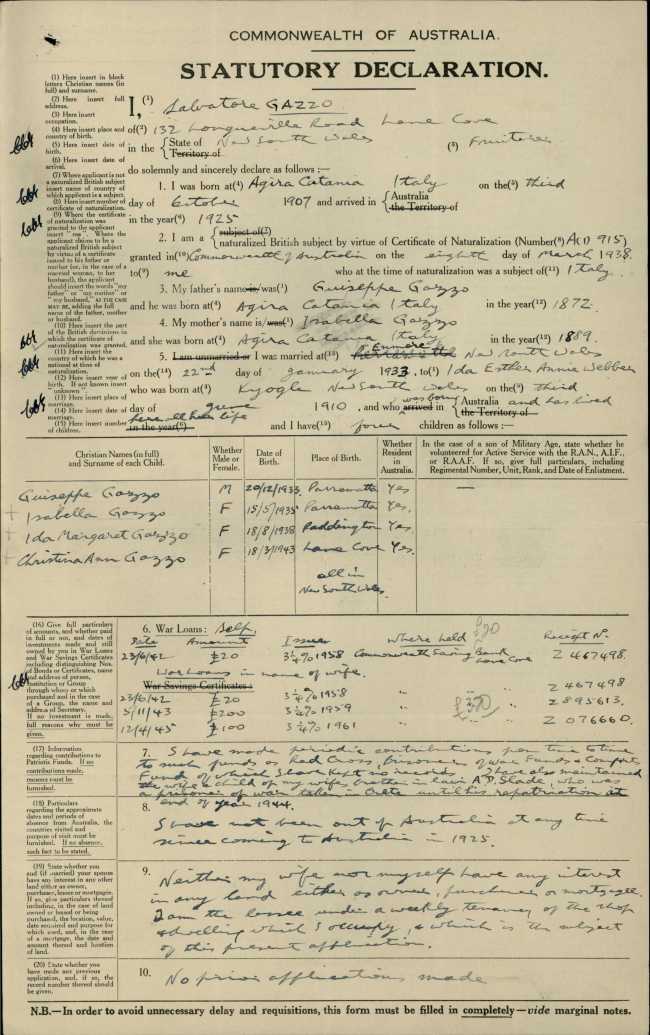 COMMONWEALTH OF AUSTRALIA.
STATUTORY DECLARATION.
(1) Here insert in block letters Christian names (in full) and surname.
(2) Here insert full address.
(3) Here insert occupation.
(4) Here insert place and country of birth.
(5) Here insert date of birth.
(6) Here insert date of arrival.
(7) Where applicant is not a naturalized British subject insert name of country of which applicant is a subject.
(8) Here insert number of certificate of naturalization.
(9) Where the certificate of naturalization was granted to the applicant insert "me". Where the applicant claims to be a naturalized British subject by virtue of a certificate issued to his father or mother (or, in the case of a married woman, to her husband), the applicant should insert the words "my father" or "my mother" or "my husband," AS THE CASE MAY BE, adding the full name of the father, mother or husband.
(10) Here insert the part of the British dominions in which the certificate of naturalization was granted.
(11) Here insert the country of which he was a national at time of naturalization.
(12) Here insert year of birth. If not known insert "unknown".
(13) Here insert place of marriage.
(14) Here insert date of marriage.
(15) Here insert number of children.
I, (1) Salvatore GAZZO
of(2) 132 Longueville Road Lane Cove
in the State of New South Wales (3) Fruiterer
Territory of
do solemnly and sincerely declare as follows :—
1. I was born at(4) Agira Catania Italy on the(5) third
day of October 1907 and arrived in Australia
the Territory of
in the year(6) 1925
2. I am a subject of(7)
naturalized British subject by virtue of Certificate of Naturalization (Number(8) A(1) 915)
granted in(10) Commonwealth of Australia on the eighth day of March 1938.
to(9) me who at the time of naturalization was a subject of(11) Italy.
3. My father's name is/was(1) Guiseppe Gazzo
and he was born at(4) Agira Catania Italy in the year(12) 1872.
4. My mother's name is/was(1) Isabella Gazzo
and she was born at(4) Agira Catania Italy in the year(12) 1889.
5. I am unmarried or I was married at(13) Enmore New South Wales
on the(14) 22nd day of January 1933, to(1) Ida Esther Annie Webber
who was born at(4) Kyogle New South Wales on the(5) third
day of June 1910, and who was born arrived in Australia and has lived
the Territory of
here all her life
in the year(6) and I have(15) four children as follows :—
Christian Names (in full) and Surname of each Child.
Whether Male or Female.
Date of Birth.
Place of Birth.
Whether Resident in Australia.
In the case of a son of Military Age, state whether he volunteered for Active Service with the R.A.N., A.I.F., or R.A.A.F. If so, give full particulars, including Regimental Number, Unit, Rank, and Date of Enlistment.
Guiseppe Gazzo M 20/12/1933. Parramatta Yes —
Isabella Gazzo F 15/5/1935 Parramatta. Yes
Ida Margaret Gazzo F 18/8/1938 Paddington Yes.
Christina Ann Gazzo F 18/3/1943 Lane Cove Yes.
all in
New South Wales.
(16) Give full particulars of amounts, and whether paid in full or not, and dates of investments made and still owned by you in War Loans and War Savings Certificates including distinguishing Nos. of Bonds or Certificates, name and address of person, institution or Group through whom or which purchased and in the case of a Group, the name and address of Secretary. If no investment is made, full reasons why must be given.
6. War Loans : Self. £20
Date Amount Issue Where held Receipt No.
23/6/42 £20 3¼% 1958 Commonwealth Saving Bank Lane Cove Z 467498.
War Loans in name of wife.
War Savings Certificates :
23/6/42 £20 3¼% 1958 " " Z 467498
5/11/43 £200 3¼% 1959 " " Z 895613.
12/4/45 £100 3¼% 1961 " " Z 076660.
(17) Information regarding contributions to Patriotic Funds. If no contributions made, reasons must be furnished.
7. I have made periodic contributions from time to time
to such funds as Red Cross, Prisoners of War Funds & Comforts
Fund of which I have kept no records. I have also maintained
the wife & child of my wifes brother in law A.P. Slade, who was
a prisoner of war taken in Crete until his repatriation at
end of year 1944.
(18) Particulars regarding the approximate dates and periods of absence from Australia, the countries visited and purpose of visit must be furnished. If no absence, such fact to be stated.
8.
I have not been out of Australia at any time
since coming to Australia in 1925.
(19) State whether you and (if married) your spouse have any interest in any other land either as owner, purchaser, lessee or mortgagee. If so, give particulars thereof including, in the case of land owned or leased or being purchased, the location, value, date acquired and purpose for which used, and, in the case of a mortgage, the date and amount thereof and location of land.
9. Neither my wife nor myself have any interest
in any land either as owner, purchaser or mortgagee.
I am the lessee under a weekly tenancy of the shop
& dwelling which I occupy, & which is the subject
of this present application.
(20) State whether you have made any previous application, and, if so, the record number thereof should be given.
10. No prior applications made
N.B.—In order to avoid unnecessary delay and requisitions, this form must be filled in completely—vide marginal notes.